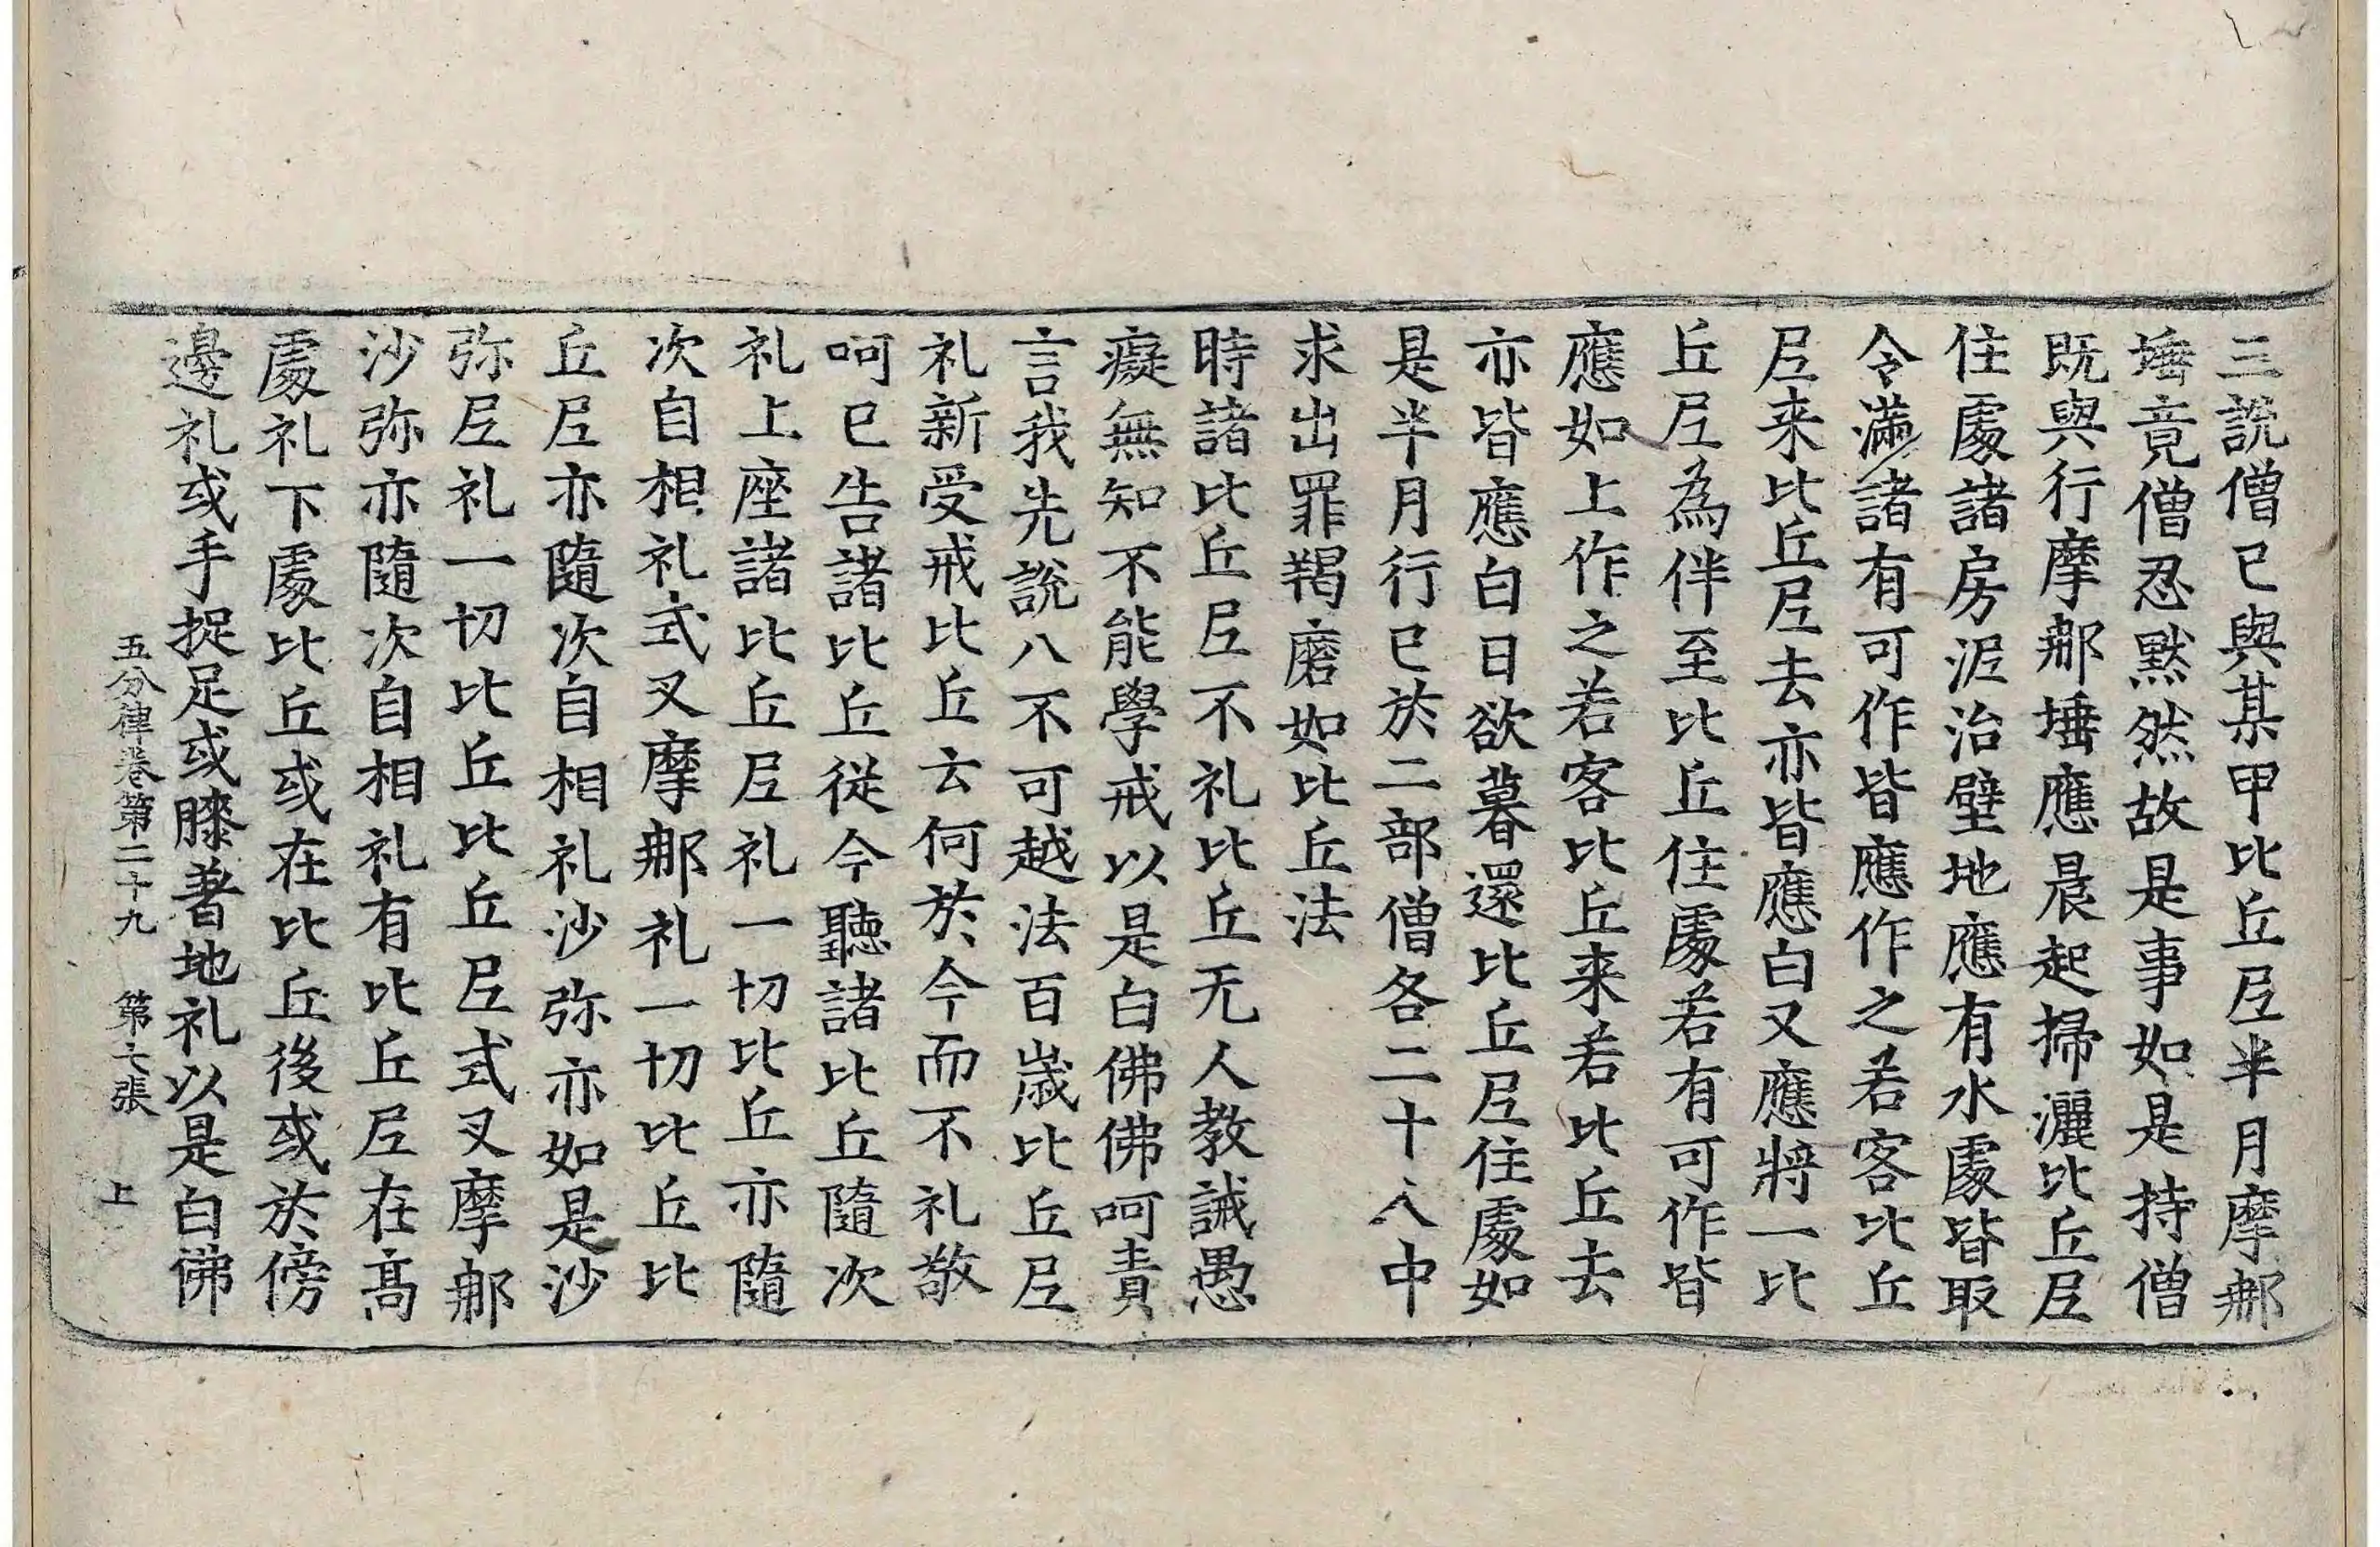 三說僧已與某甲比丘尼半月摩郍
埵竟僧忍黙然故是事如是持僧
既與行摩郍埵應晨起掃灑比丘尼
住處諸房泥治壁地應有水處皆取
令滿諸有可作皆應作之若客比丘
尼来比丘尼去亦皆應白又應將一比
丘尼為伴至比丘住處若有可作皆
應如上作之若客比丘来若比丘去
亦皆應白日欲暮還比丘尼住處如
是半月行已於二部僧各二十人中
求出罪羯磨如比丘法
時諸比丘尼不礼比丘无人教誡愚
癡無知不能學戒以是白佛佛呵責
言我先說八不可越法百歳比丘尼
礼新受戒比丘云何於今而不礼敬
呵已告諸比丘從今聽諸比丘隨次
礼上座諸比丘尼礼一切比丘亦隨
次自相礼式叉摩郍礼一切比丘比
丘尼亦隨次自相礼沙弥亦如是沙
弥尼礼一切比丘比丘尼式叉摩郍
沙弥亦隨次自相礼有比丘尼在髙
處礼下處比丘或在比丘後或於傍
邊礼或手捉足或膝著地礼以是白佛
五分律卷第二十九 第七張 上